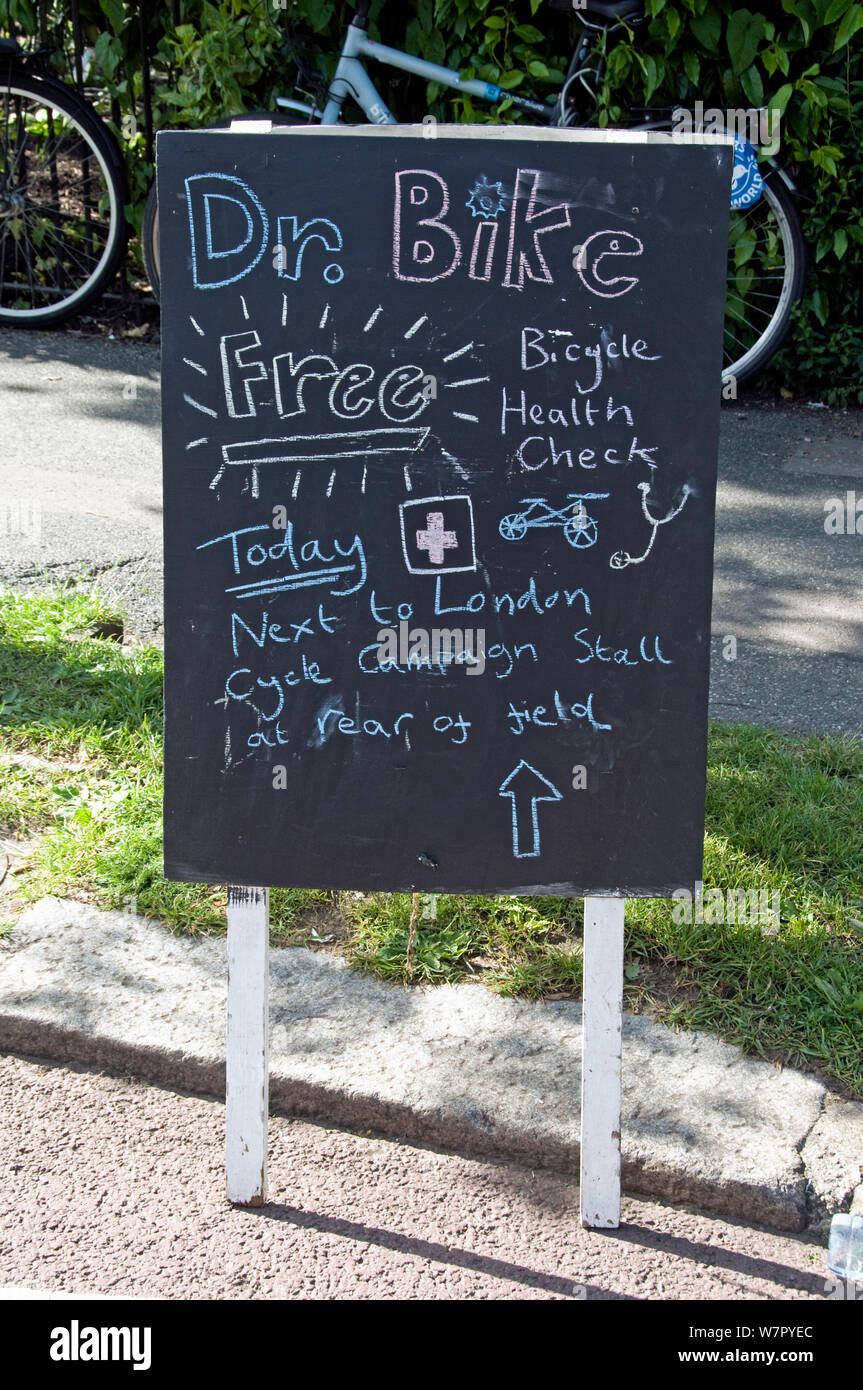 Dr. Bike
Free
Bicycle
Health
Check
Today
Next to London
Cycle Campaign Stall
at rear of field
alamy
alamy
Image ID: W7PYEC
www.alamy.com